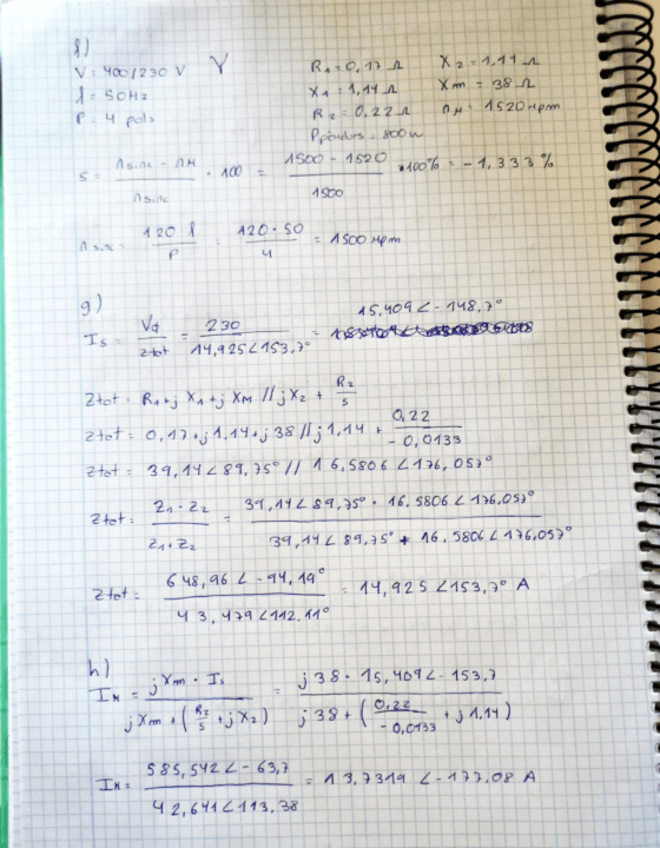 f)
V = 400/230 V   Y   R1 = 0,17 Ω   X2 = 1,14 Ω
f = 50Hz   X1 = 1,14 Ω   Xm = 38 Ω
P = 4 pols   R2 = 0,22 Ω   nM = 1520 rpm
Ppèrdues = 800 w
S = (nsinc - nM) / nsinc · 100 = (1500 - 1520) / 1500 · 100% = - 1,333 %
nsinc = 120 f / P = 120 · 50 / 4 = 1500 rpm
g)
Is = Vφ / Ztot = 230 / 14,925∠153,7° = 15,409∠-148,7°
Ztot = R1+j X1+j XM // j X2 + R2/s
Ztot = 0,17+j1,14+j38 // j1,14 + 0,22/-0,0133
Ztot = 39,14∠89,75° // 16,5806∠176,057°
Ztot = Z1 · Z2 / Z1+Z2 = 39,14∠89,75° · 16,5806∠176,057° / 39,14∠89,75° + 16,5806∠176,057°
Ztot = 648,96∠-94,19° / 43,479∠112,11° = 14,925∠153,7° A
h)
IM = jXm · Is / jXm + (R2/s + jX2) = j38 · 15,409∠-153,7 / j38 + (0,22/-0,0133 + j1,14)
IM = 585,542∠-63,7 / 42,641∠113,38 = 13,7319 ∠-177,08 A